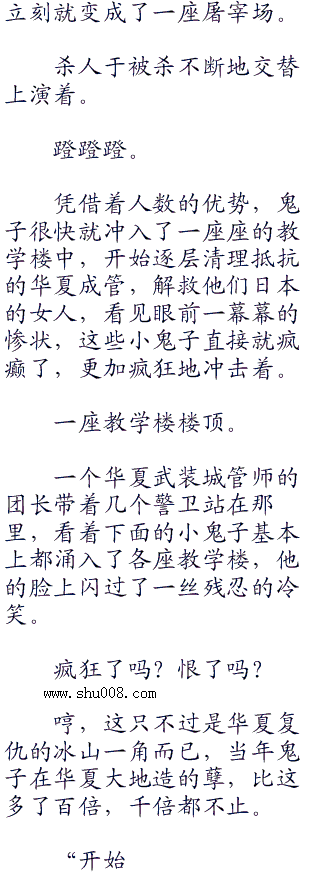 立刻就变成了一座屠宰场。
杀人于被杀不断地交替
上演着。
蹬蹬蹬。
凭借着人数的优势，鬼
子很快就冲入了一座座的教
学楼中，开始逐层清理抵抗
的华夏成管，解救他们日本
的女人，看见眼前一幕幕的
惨状，这些小鬼子直接就疯
癫了，更加疯狂地冲击着。
一座教学楼楼顶。
一个华夏武装城管师的
团长带着几个警卫站在那
里，看着下面的小鬼子基本
上都涌入了各座教学楼，他
的脸上闪过了一丝残忍的冷
笑。
疯狂了吗？恨了吗？
www.shu008.com
哼，这只不过是华夏复
仇的冰山一角而已，当年鬼
子在华夏大地造的孽，比这
多了百倍，千倍都不止。
“开始